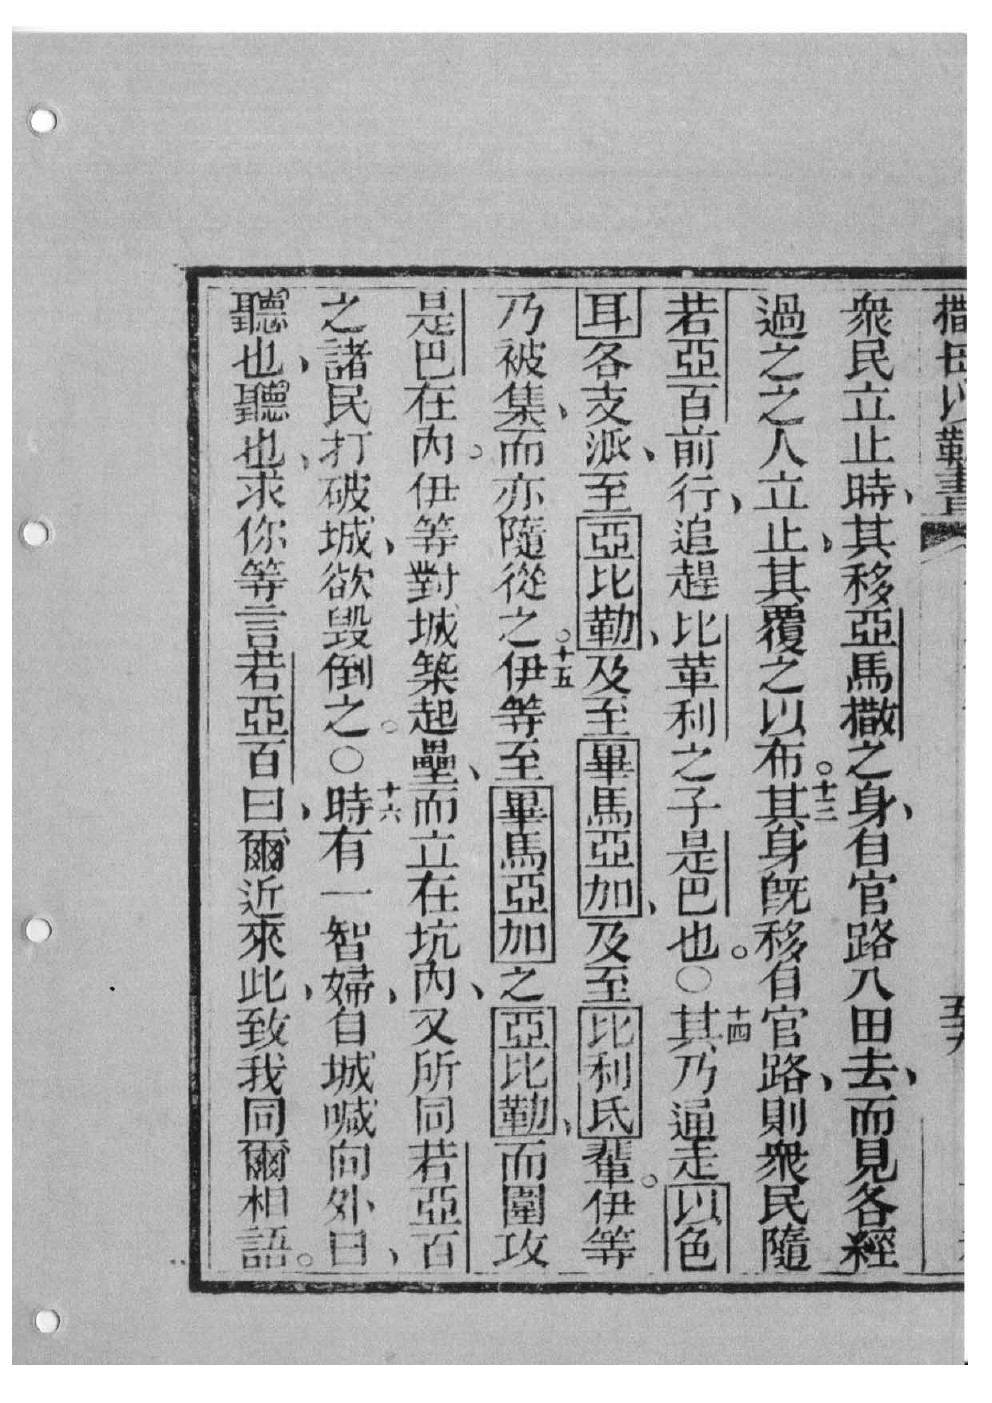 撒母以勒書
衆民立止時、其移亞馬撒之身、自官路入田去、而見各經
過之之人立止、其覆之以布。十三其身旣移自官路、則衆民隨
若亞百前行、追趕比革利之子是巴也。〇十四其乃通走以色
耳各支派、至亞比勒、及至畢馬亞加、及至比利氐輩。伊等
乃被集、而亦隨從之。十五伊等至畢馬亞加之亞比勒、而圍攻
是巴在內。伊等對城築起壘、而立在坑內、又所同若亞百
之諸民打破城、欲毀倒之。〇十六時有一智婦、自城喊向外曰、
聽也、聽也、求你等言若亞百曰、爾近來此、致我同爾相語。